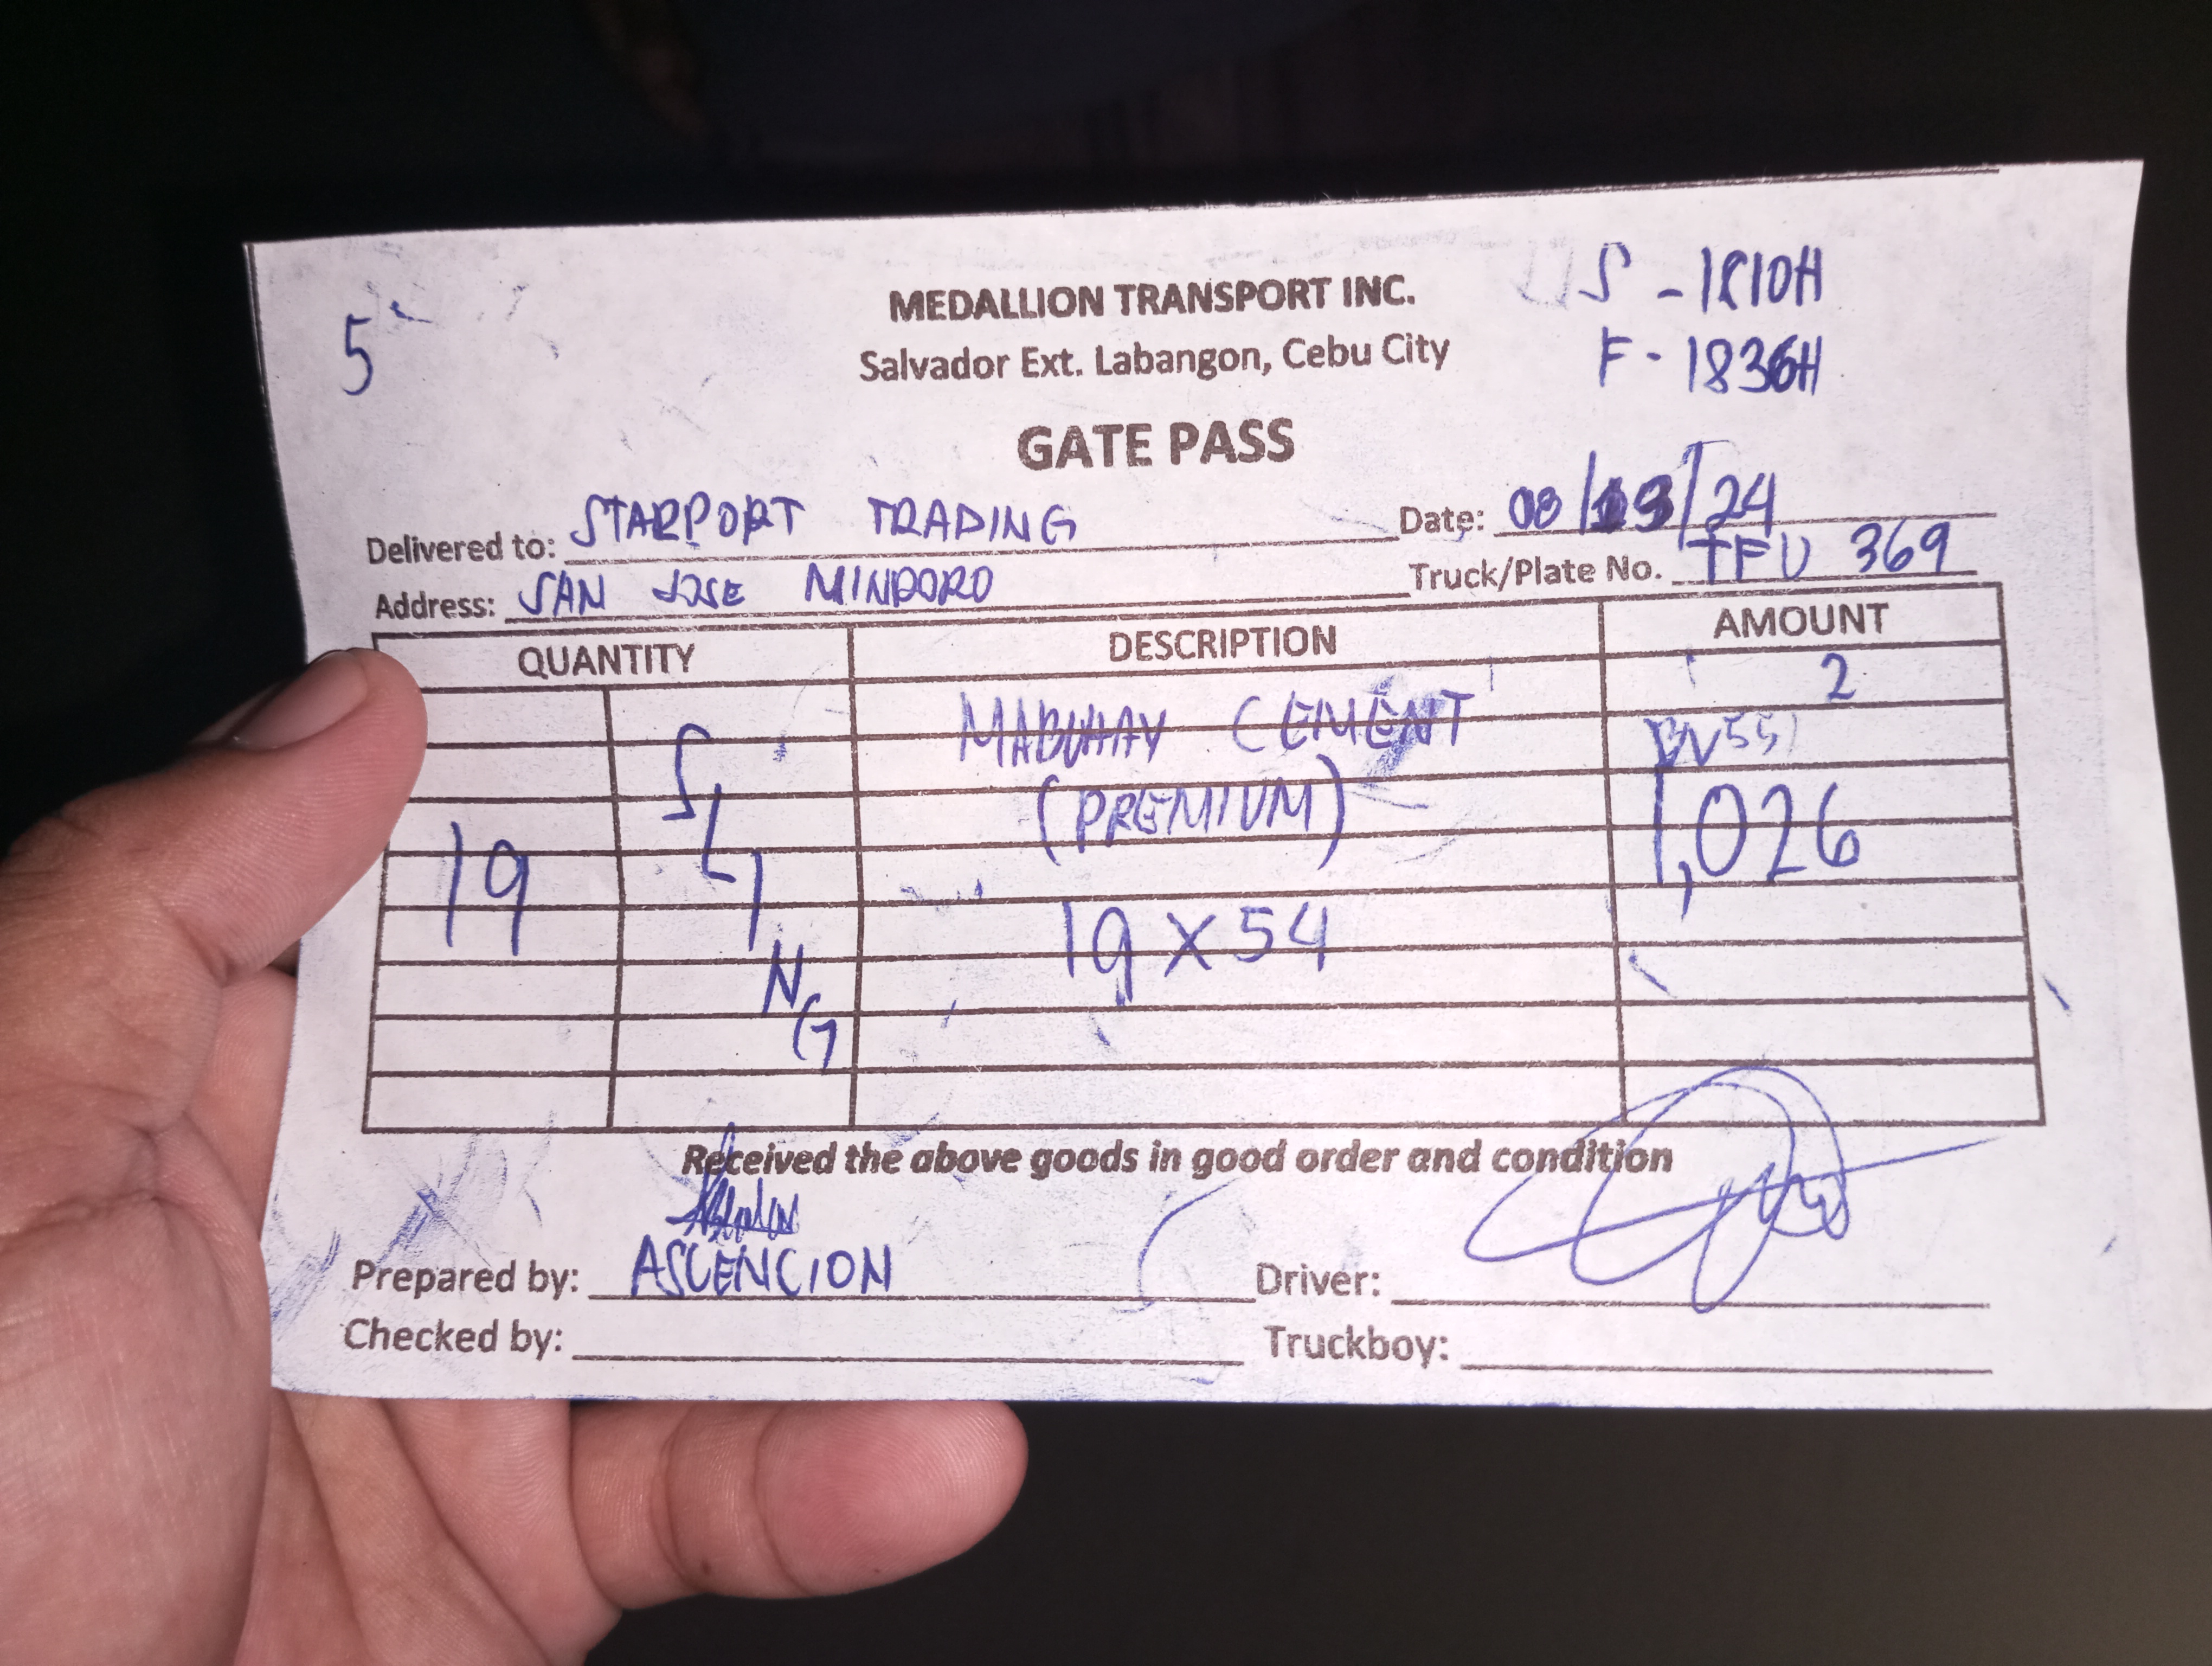 5
MEDALLION TRANSPORT INC.
S - 1810H
Salvador Ext. Labangon, Cebu City
F - 1836H
GATE PASS
Delivered to: STARPORT TRADING Date: 08/13/24
Address: SAN JOSE MINDORO Truck/Plate No. TFU 369
QUANTITY DESCRIPTION AMOUNT
2
MABUHAY CEMENT
(PREMIUM) 1,026
19 SLING 19 X 54
Received the above goods in good order and condition
Prepared by: ASCENCION Driver:
Checked by: Truckboy: